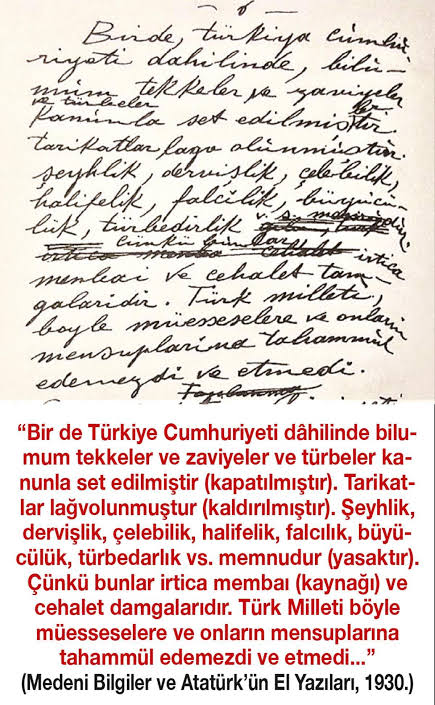 6
Birde, türkiya cümhu
riyeti dahilinde, bilü-
mum tekkeler ve zaviyeler
ve türbeler
kanunla set edilmiştir.
tarikatlar lağv olünmüştür.
şeyhlik, dervişlik, çelebilik,
halifelik, falcilik, büyücü-
lük, türbedarlik v. s. memnudur
çünkü bunlar irtica
menbai ve cehalet dam-
galaridir. Türk milleti,
boyle müesseselere ve onların
mensuplarina tahammül
edemezdi ve etmedi.
“Bir de Türkiye Cumhuriyeti dâhilinde bilu-
mum tekkeler ve zaviyeler ve türbeler ka-
nunla set edilmiştir (kapatılmıştır). Tarikat-
lar lağvolunmuştur (kaldırılmıştır). Şeyhlik,
dervişlik, çelebilik, halifelik, falcılık, büyü-
cülük, türbedarlık vs. memnudur (yasaktır).
Çünkü bunlar irtica membaı (kaynağı) ve
cehalet damgalarıdır. Türk Milleti böyle
müesseselere ve onların mensuplarına
tahammül edemezdi ve etmedi...”
(Medeni Bilgiler ve Atatürk’ün El Yazıları, 1930.)